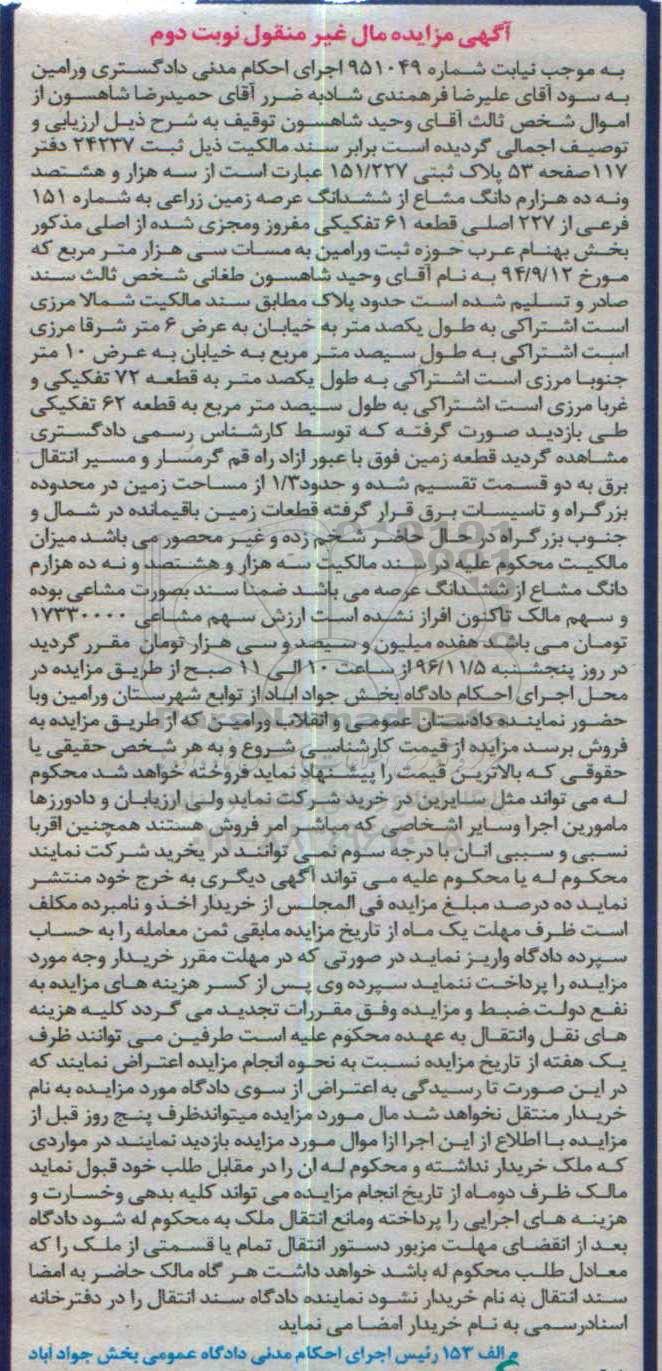 آگهی مزایده مال غیر منقول نوبت دوم
به موجب نیابت شماره ۹۵۱۰۴۹ اجرای احکام مدنی دادگستری ورامین
به سود آقای علیرضا فرهمندی شادبه ضرر آقای حمیدرضا شاهسون از
اموال شخص ثالث آقای وحید شاهسون توقیف به شرح ذیل ارزیابی و
توصیف اجمالی گردیده است برابر سند مالکیت ذیل ثبت ۲۴۲۳۷ دفتر
۱۱۷صفحه ۵۳ پلاک ثبتی ۱۵۱/۲۲۷ عبارت است از سه هزار و هشتصد
ونه ده هزارم دانگ مشاع از ششدانگ عرصه زمین زراعی به شماره ۱۵۱
فرعی از ۲۲۷ اصلی قطعه ۶۱ تفکیکی مفروز ومجزی شده از اصلی مذکور
بخش بهنام عرب حوزه ثبت ورامین به مسات سی هزار متر مربع که
مورخ ۹۴/۹/۱۲ به نام آقای وحید شاهسون طغانی شخص ثالث سند
صادر و تسلیم شده است حدود پلاک مطابق سند مالکیت شمالا مرزی
است اشتراکی به طول یکصد متر به خیابان به عرض ۶ متر شرقا مرزی
است اشتراکی به طول سیصد متر مربع به خیابان به عرض ۱۰ متر
جنوبا مرزی است اشتراکی به طول یکصد متر به قطعه ۷۲ تفکیکی و
غربا مرزی است اشتراکی به طول سیصد متر مربع به قطعه ۶۲ تفکیکی
طی بازدید صورت گرفته که توسط کارشناس رسمی دادگستری
مشاهده گردید قطعه زمین فوق با عبور ازاد راه قم گرمسار و مسیر انتقال
برق به دو قسمت تقسیم شده و حدود۱/۳ از مساحت زمین در محدوده
بزرگراه و تاسیسات برق قرار گرفته قطعات زمین باقیمانده در شمال و
جنوب بزرگراه در حال حاضر شخم زده و غیر محصور می باشد میزان
مالکیت محکوم علیه درسند مالکیت سه هزار و هشتصد و نه ده هزارم
دانگ مشاع از ششدانگ عرصه می باشد ضمنا سند بصورت مشاعی بوده
و سهم مالک تاکنون افراز نشده است ارزش سهم مشاعی ۱۷۳۳۰۰۰۰
تومان می باشد هفده میلیون و سیصد و سی هزار تومان مقرر گردید
در روز پنجشنبه ۹۶/۱۱/۵ از ساعت ۱۰ الی ۱۱ صبح از طریق مزایده در
محل اجرای احکام دادگاه بخش جواد اباد از توابع شهرستان ورامین وبا
حضور نماینده دادستان عمومی و انقلاب ورامین که از طریق مزایده به
فروش برسد مزایده از قیمت کارشناسی شروع و به هر شخص حقیقی یا
حقوقی که بالاترین قیمت را پیشنهاد نماید فروخته خواهد شد محکوم
له می تواند مثل سایرین در خرید شرکت نماید ولی ارزیابان و دادورزها
مامورین اجرا وسایر اشخاصی که مباشر امر فروش هستند همچنین اقربا
نسبی و سببی انان با درجه سوم نمی توانند در یخرید شرکت نمایند
محکوم له یا محکوم علیه می تواند آگهی دیگری به خرج خود منتشر
نماید ده درصد مبلغ مزایده فی المجلس از خریدار اخذ و نامبرده مکلف
است ظرف مهلت یک ماه از تاریخ مزایده مابقی ثمن معامله را به حساب
سپرده دادگاه واریز نماید در صورتی که در مهلت مقرر خریدار وجه مورد
مزایده را پرداخت ننماید سپرده وی پس از کسر هزینه های مزایده به
نفع دولت ضبط و مزایده وفق مقررات تجدید می گردد کلیه هزینه
های نقل وانتقال به عهده محکوم علیه است طرفین می توانند ظرف
یک هفته از تاریخ مزایده نسبت به نحوه انجام مزایده اعتراض نمایند که
در این صورت تا رسیدگی به اعتراض از سوی دادگاه مورد مزایده به نام
خریدار منتقل نخواهد شد مال مورد مزایده میتواندظرف پنج روز قبل از
مزایده با اطلاع از این اجرا ازا موال مورد مزایده بازدید نمایند در مواردی
که ملک خریدار نداشته و محکوم له ان را در مقابل طلب خود قبول نماید
مالک ظرف دوماه از تاریخ انجام مزایده می تواند کلیه بدهی وخسارت و
هزینه های اجرایی را پرداخته ومانع انتقال ملک به محکوم له شود دادگاه
بعد از انقضای مهلت مزبور دستور انتقال تمام یا قسمتی از ملک را که
معادل طلب محکوم له باشد خواهد داشت هر گاه مالک حاضر به امضا
سند انتقال به نام خریدار نشود نماینده دادگاه سند انتقال را در دفترخانه
اسنادرسمی به نام خریدار امضا می نماید
م الف ۱۵۳ رئیس اجرای احکام مدنی دادگاه عمومی بخش جواد آباد